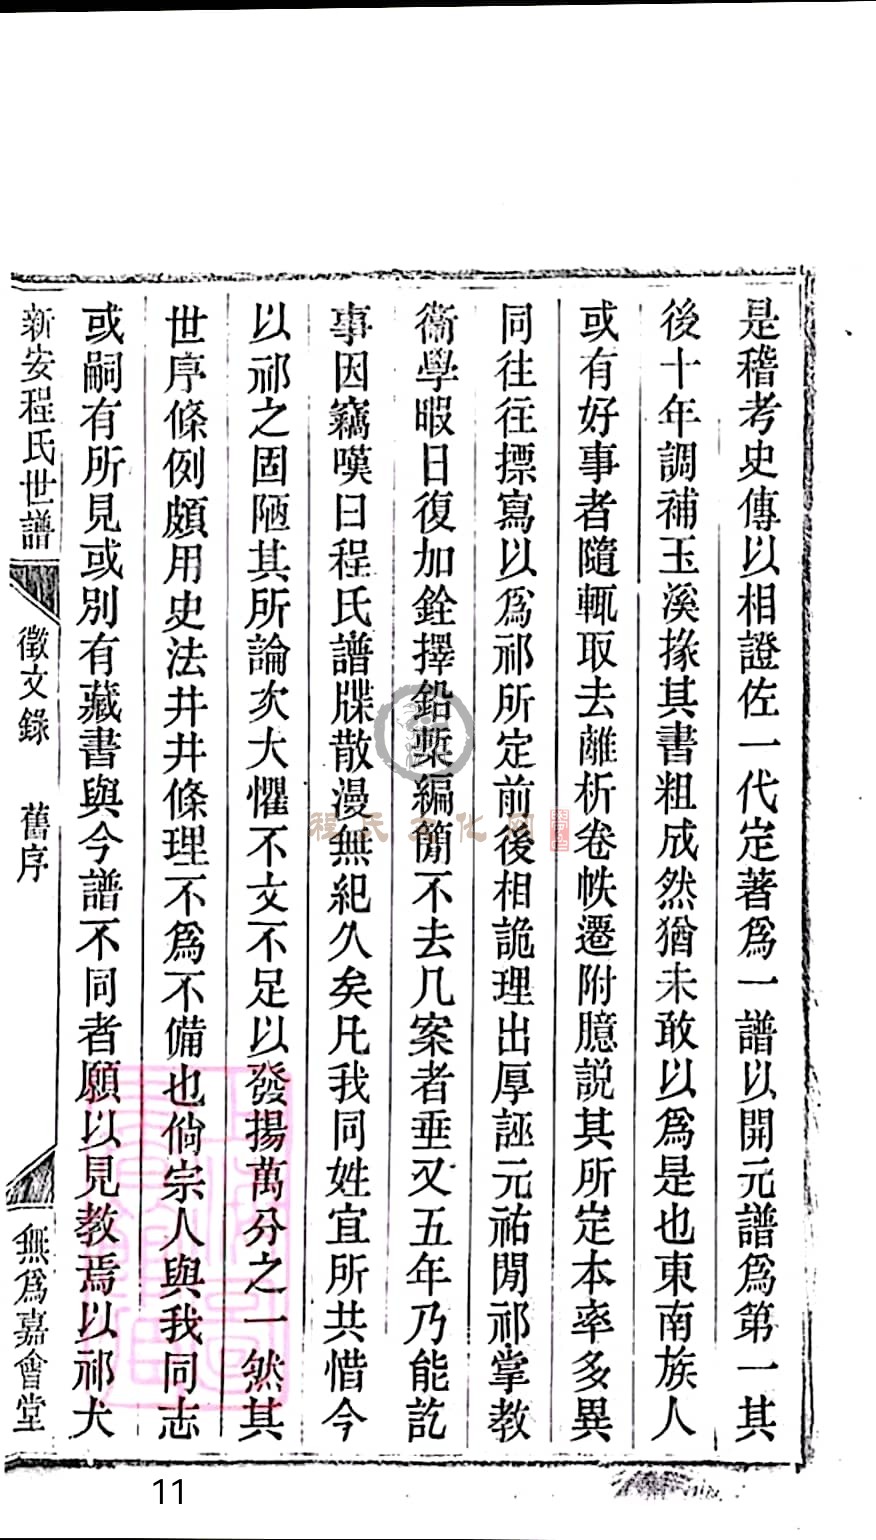 是稽考史傳以相證佐一代定著爲一譜以開元譜爲第一其
後十年調補玉溪掾其書粗成然猶未敢以爲是也東南族人
或有好事者隨輒取去離析卷帙遷附臆説其所定本率多異
同往往摽寫以爲祁所定前後相詭理出厚誣元祐閒祁掌教
衞學暇日復加銓擇鉛槧編簡不去几案者垂又五年乃能訖
事因竊嘆曰程氏譜牒散漫無紀久矣凡我同姓宜所共惜今
以祁之固陋其所論次大懼不文不足以發揚萬分之一然其
世序條例頗用史法井井條理不爲不備也倘宗人與我同志
或嗣有所見或別有藏書與今譜不同者願以見教焉以祁犬
新安程氏世譜 徵文錄 舊序 無爲嘉會堂
程氏文化网
11